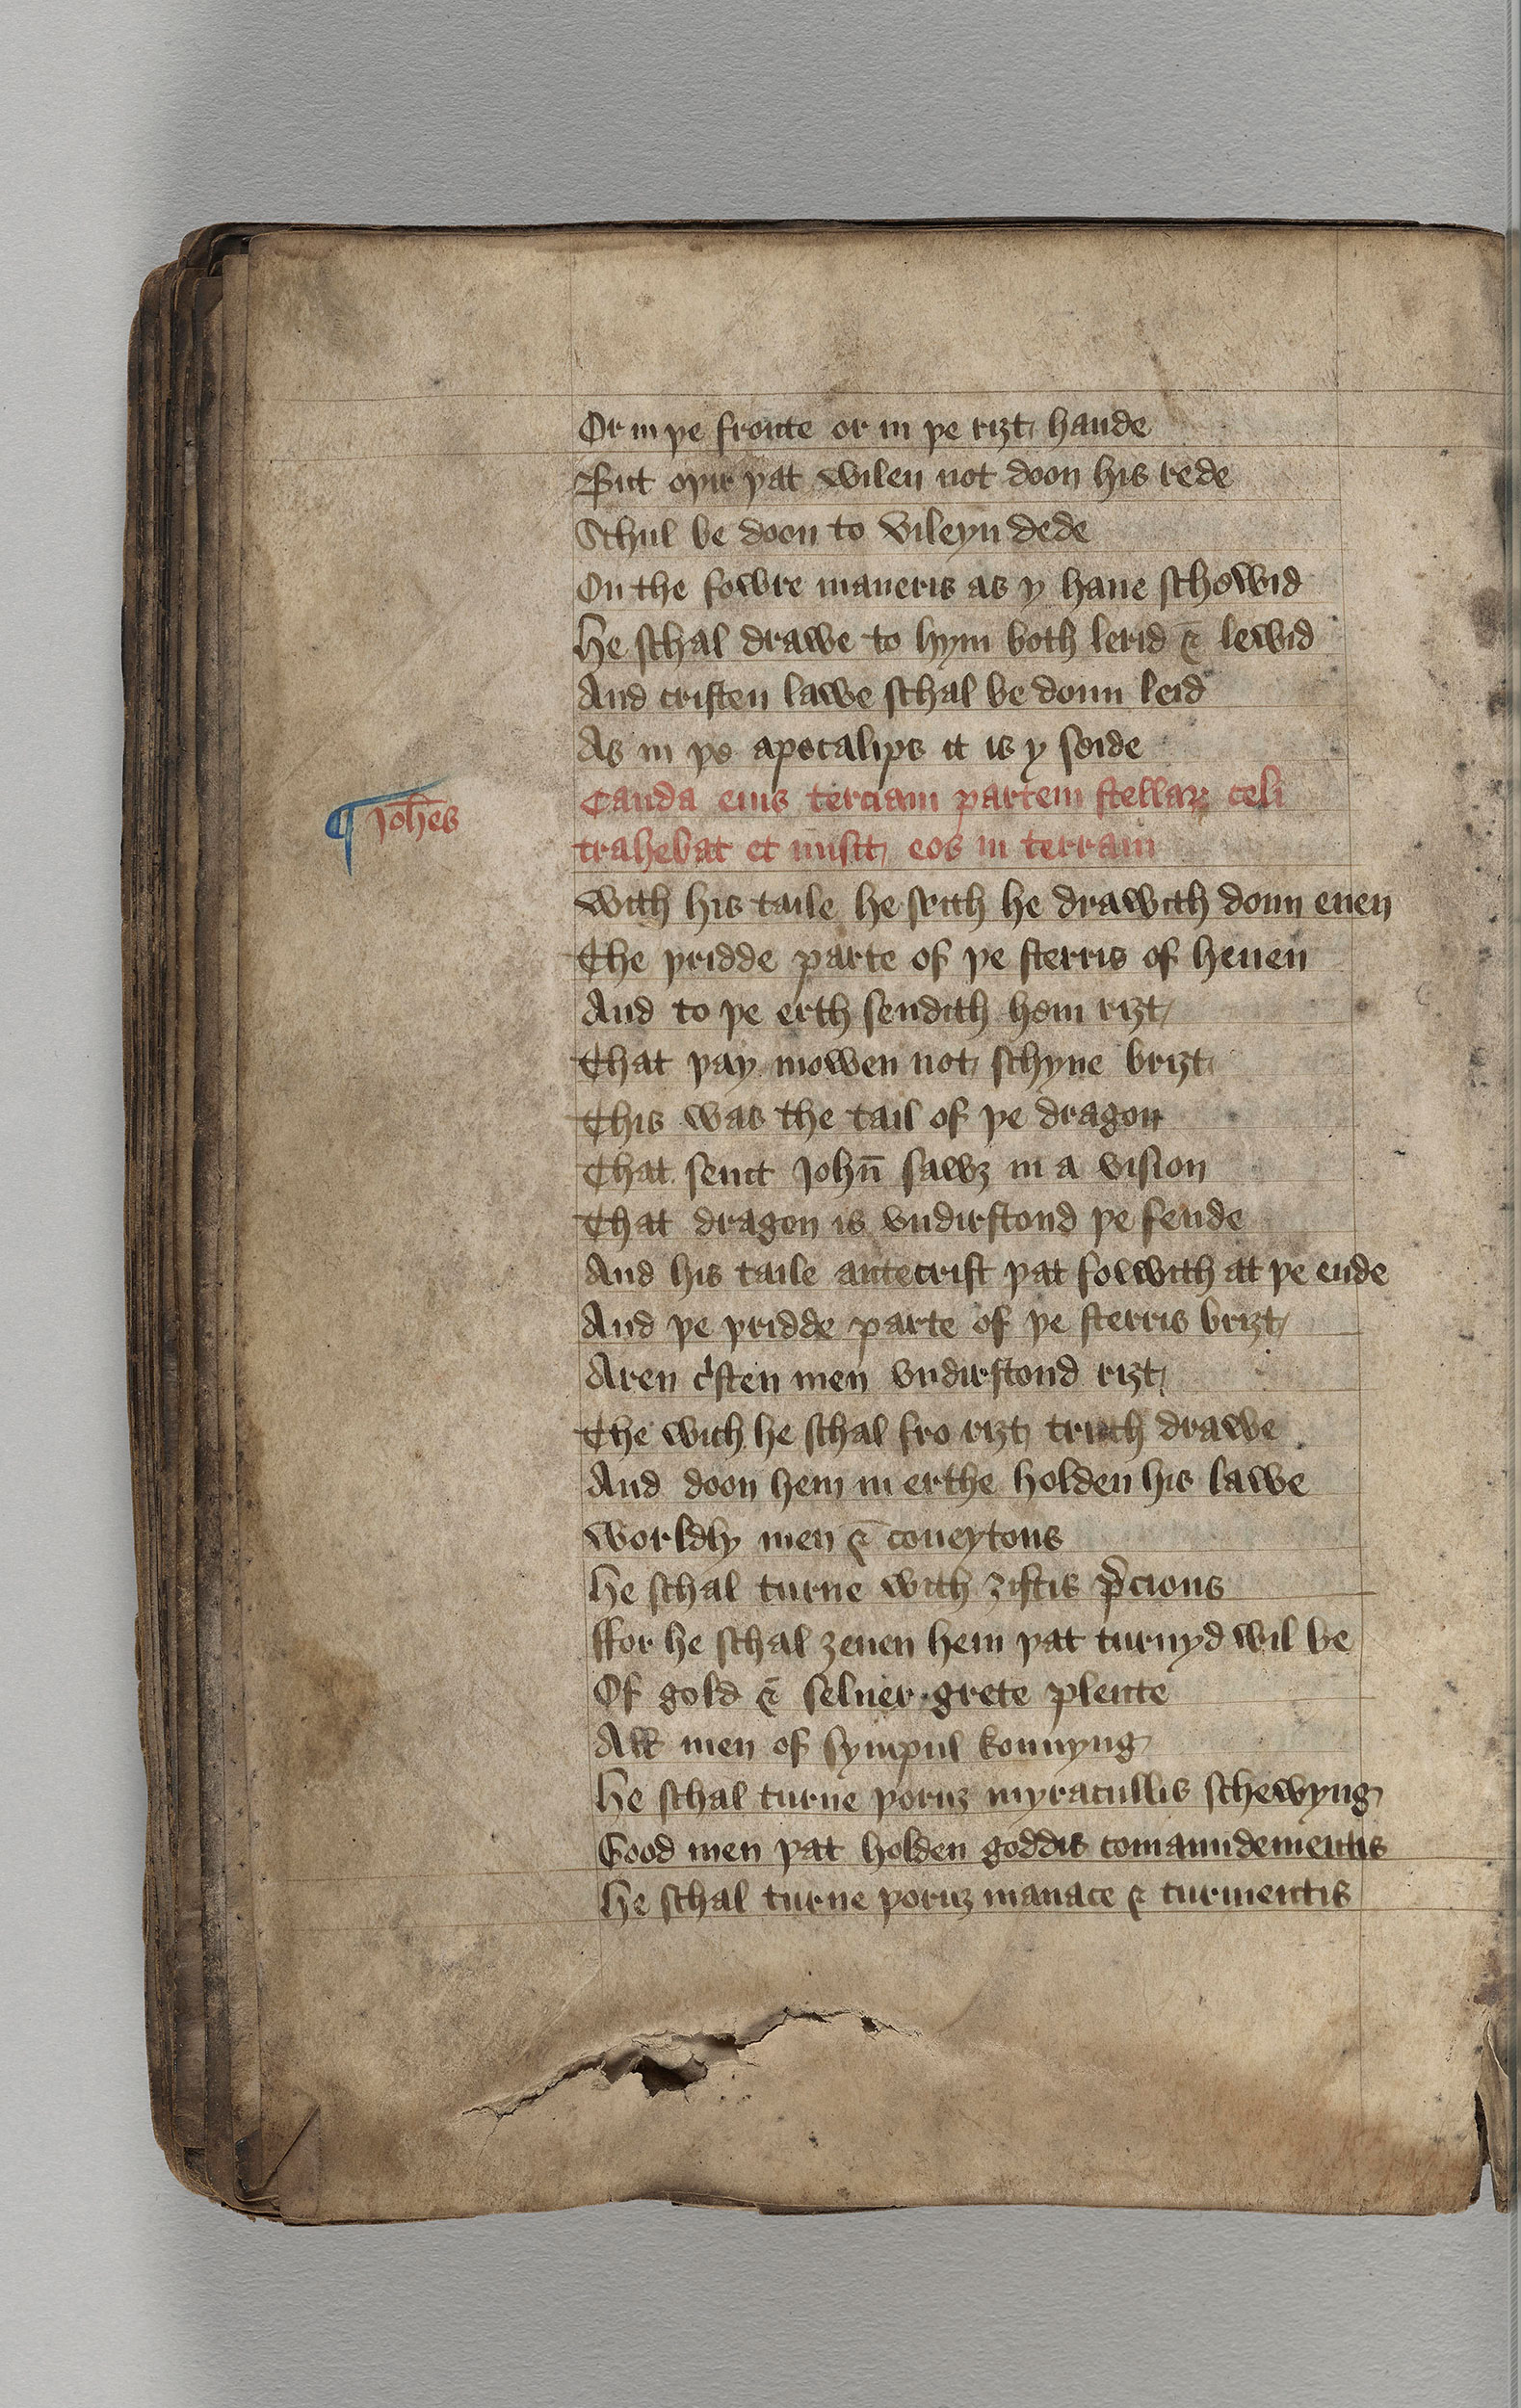 Or in þe fronte or in þe riȝt hande
But oþir þat wilen not doon his rede
Schul be doon to vileyn dede
On the fowre maneris as y haue schowid
He schal drawe to hym both lerid & lewid
And cristen lawe schal be doun leid
As in þe apocalips it is y seide
Cauda eius terciam partem stellaꝝ celi
¶ Joh̄es
trahebat et misit eos in terram
With his taile he seith he drawith doun euen
The þridde parte of þe sterris of heuen
And to þe erth sendith hem riȝt
That þay mowen not schyne briȝt
This was the tail of þe dragon
That seint Joħn sawȝ in a vision
That dragon is vndirstond þe fende
And his taile antecrist þat folwith at þe ende
And þe þridde parte of þe sterris briȝt
Aren cͥsten men vndirstond riȝt
The wich he schal fro riȝt truth drawe
And doon hem in erthe holden his lawe
Worldly men & coueytous
He schal turne with ȝiftis p̄cious
ffor he schal ȝeuen hem þat turnyd wil be
Of gold & seluer grete plente
All men of sympul konnyng
He schal turne þoruȝ myracullis schewyng
Good men þat holden goddis comaundementis
He schal turne þoruȝ manace & turmentis